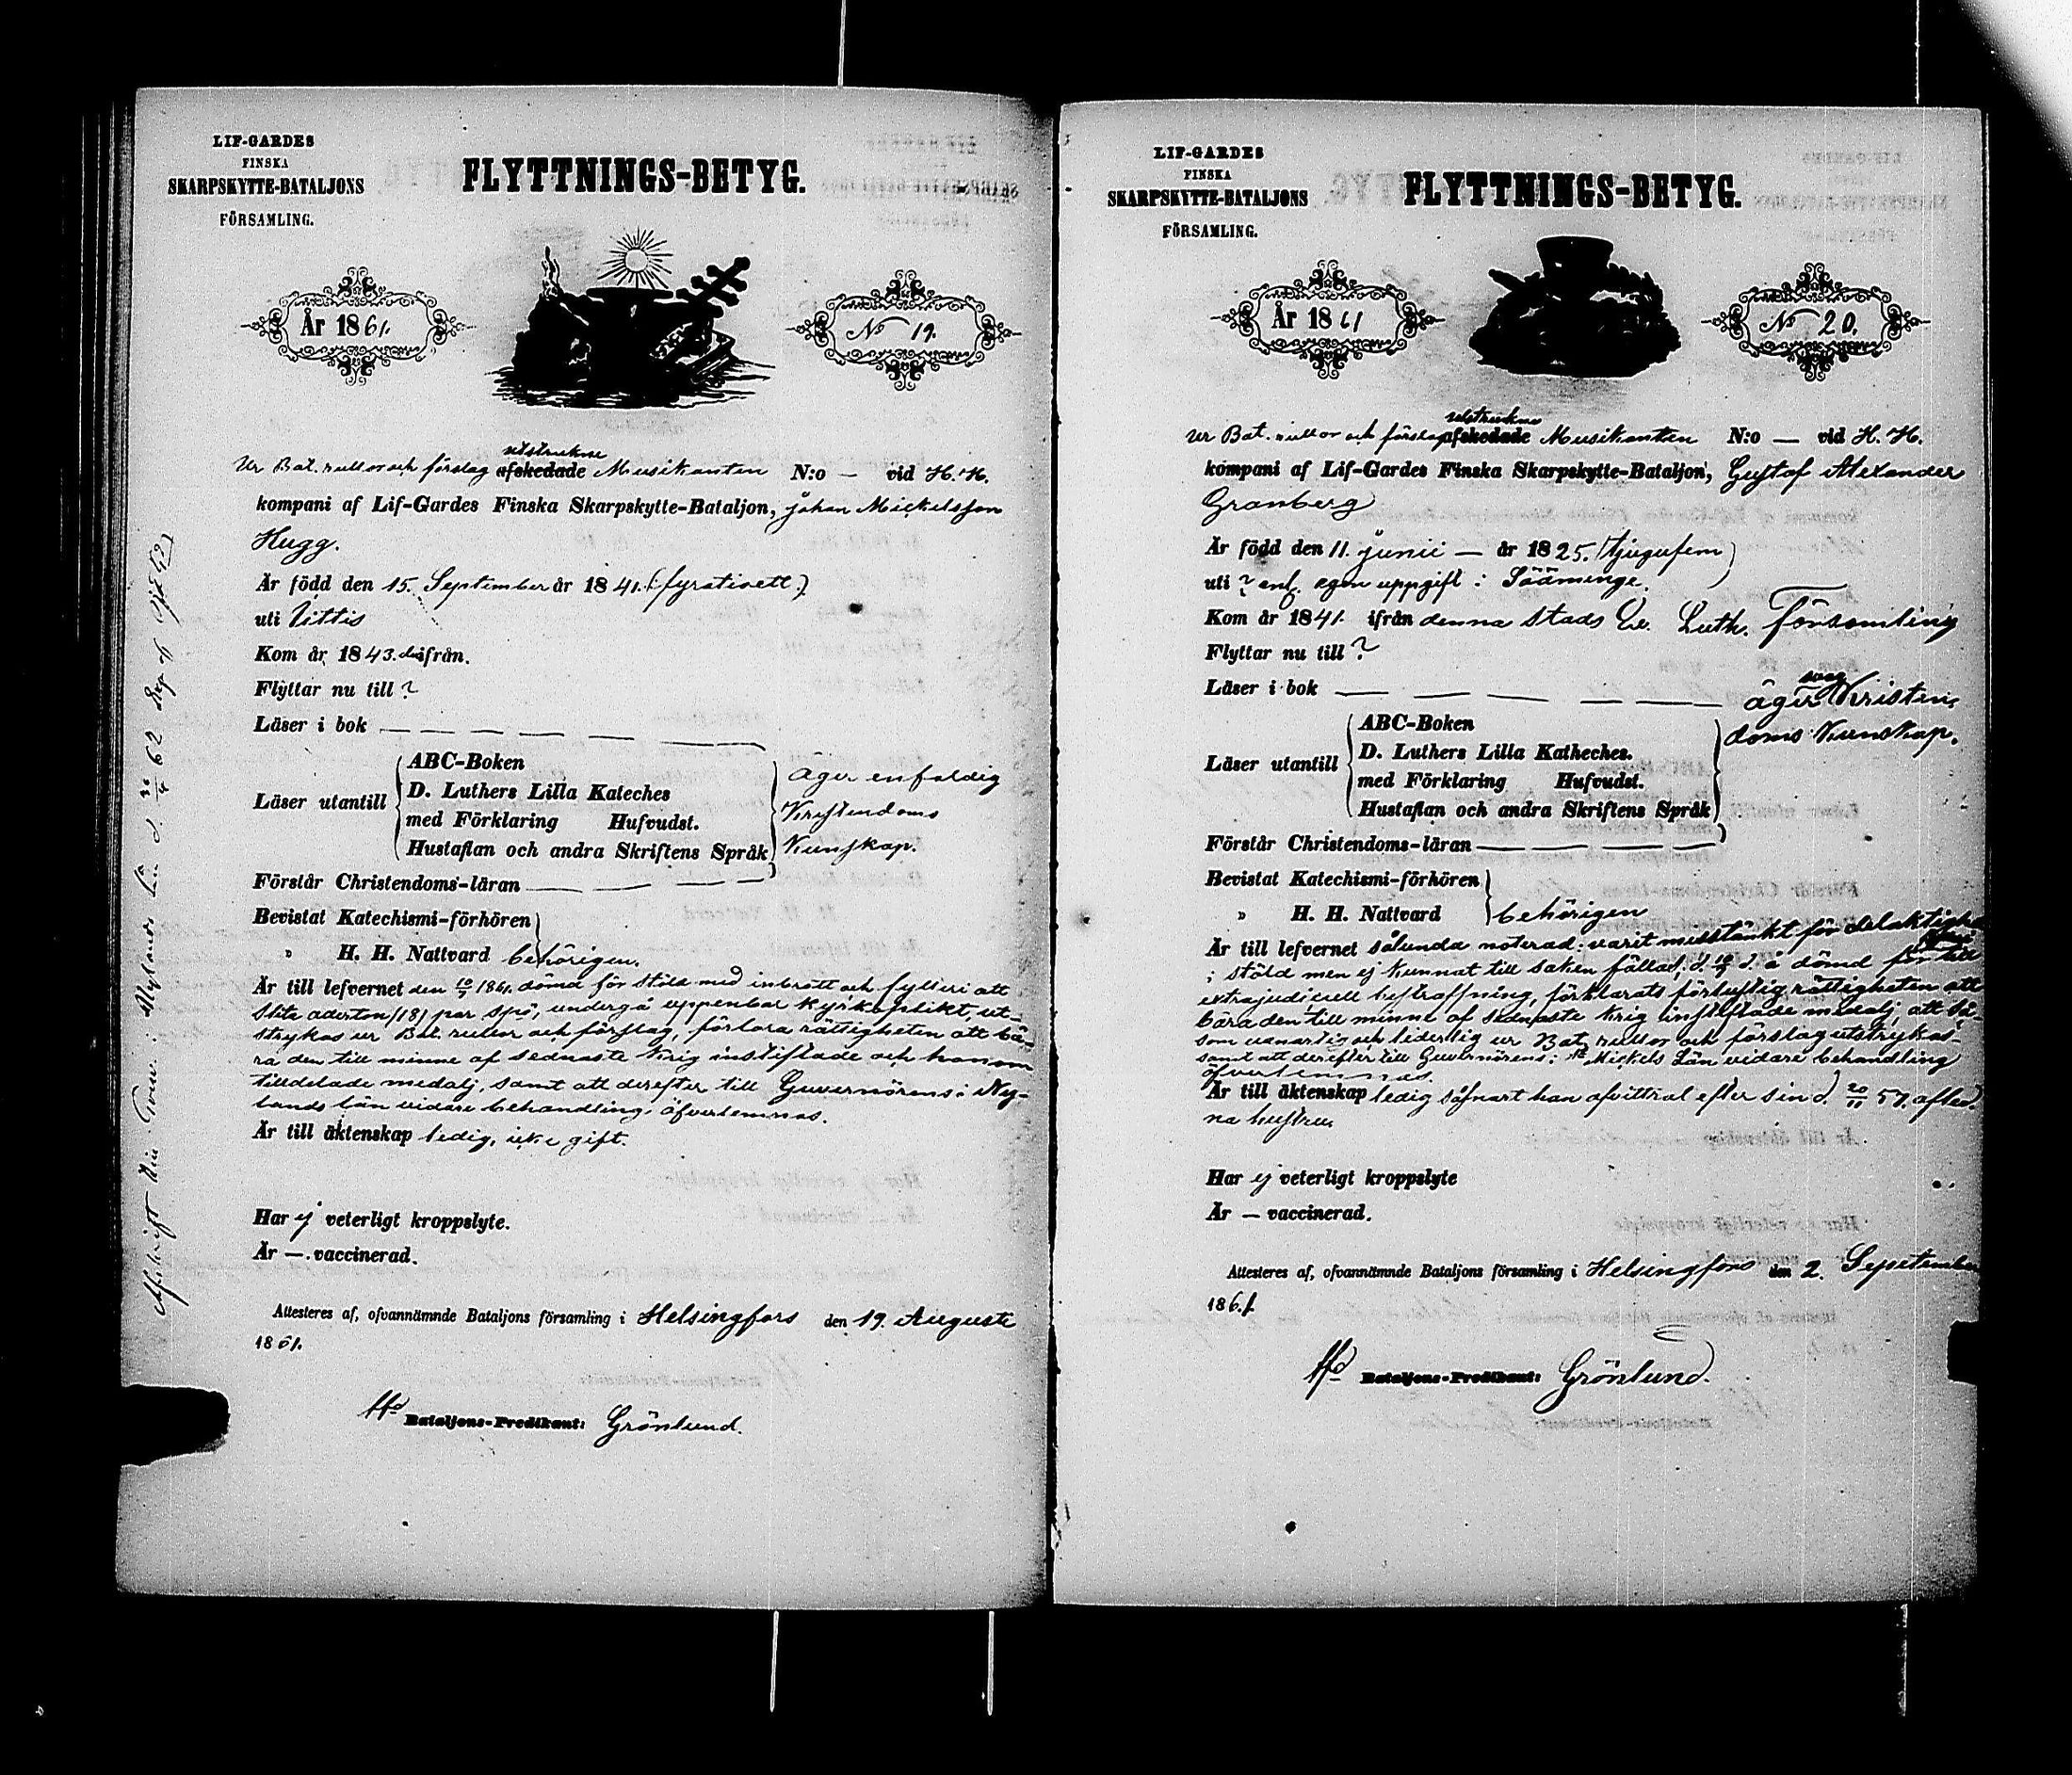 LIF-GARDES
FINSKA
SKARPSKYTTE-BATALJONS
FÖRSAMLING.
FLYTTNINGS-BETYG.
År 1861.
No 19.
utstrukne
Ur Bat. rullor och förslag afskedade Musikanten N:o — vid H. H.
kompani af Lif-Gardes Finska Skarpskytte-Bataljon, Johan Mickelsson
Hugg.
Är född den 15. September år 1841. (fyrationett)
uti Vittis
Kom år 1843. ifrån.
Flyttar nu till ?
Läser i bok — — — — — —
Läser utantill
ABC-Boken
D. Luthers Lilla Kateches
med Förklaring Hufvudst.
Hustaflan och andra Skriftens Språk
äger enfaldig
Kristendoms
Kunskap.
Förstår Christendoms-läran — — — —
Bevistat Katechismi-förhören
" H. H. Nattvard behörigen.
Är till lefvernet den 10/7 1861. dömd för stöld med inbrott och fylleri att
slita aderton /18/ par spö, undergå uppenbar kyrkoplikt, ut-
strykas ur Bat. rullor och förslag, förlora rättigheten att bä-
ra den till minne af sednaste krig instiftade och honom
tilldelade medalj, samt att derefter till Guvernörens i Ny-
lands län vidare behandling öfverlemnas.
Är till äktenskap ledig, icke gift.
Har ej veterligt kroppslyte.
Är — vaccinerad.
Attesteres af, ofvannämnde Bataljons församling i Helsingfors den 19. Augusti
1861.
Bataljons-Predikant: Grönlund.
LIF-GARDES
FINSKA
SKARPSKYTTE-BATALJONS
FÖRSAMLING.
FLYTTNINGS-BETYG.
År 1861
No 20.
utstrukne
Ur Bat. rullor och förslag afskedade Musikanten N:o — vid H. H.
kompani af Lif-Gardes Finska Skarpskytte-Bataljon, Gustaf Alexander
Granberg
Är född den 11. Junii — år 1825. (tjugufem)
uti ? enl. egen uppgift: Sääminge.
Kom år 1841. ifrån denna stads Ev. Luth. Församling
Flyttar nu till ?
Läser i bok — — — — — äger svag Kristen-
doms Kunskap.
Läser utantill
ABC-Boken
D. Luthers Lilla Katheches.
med Förklaring Hufvudst.
Hustaflan och andra Skriftens Språk
Förstår Christendoms-läran — — — —
Bevistat Katechismi-förhören
" H. H. Nattvard behörigen
Är till lefvernet sålunda noterad: varit misstänkt för delaktighet
i stöld men ej kunnat till saken fällas; d. d. å dömd för till
extrajudiciell bestraffning, förklarats förlustig rättigheten att
bära den till minne af sednaste krig instiftade medalj, att så-
som vanartig och liderlig ur Bat. rullor och förslag utstrykas
samt att derefter till Guvernörens i St Mickels Län vidare behandling
öfverlemnas.
Är till äktenskap ledig såsnart han afvittrat efter sin d. 20/11 57. aflid-
na hustru.
Har ej veterligt kroppslyte
Är — vaccinerad.
Attesteres af, ofvannämnde Bataljons församling i Helsingfors den 2. September
1861.
Bataljons-Predikant: Grönlund.